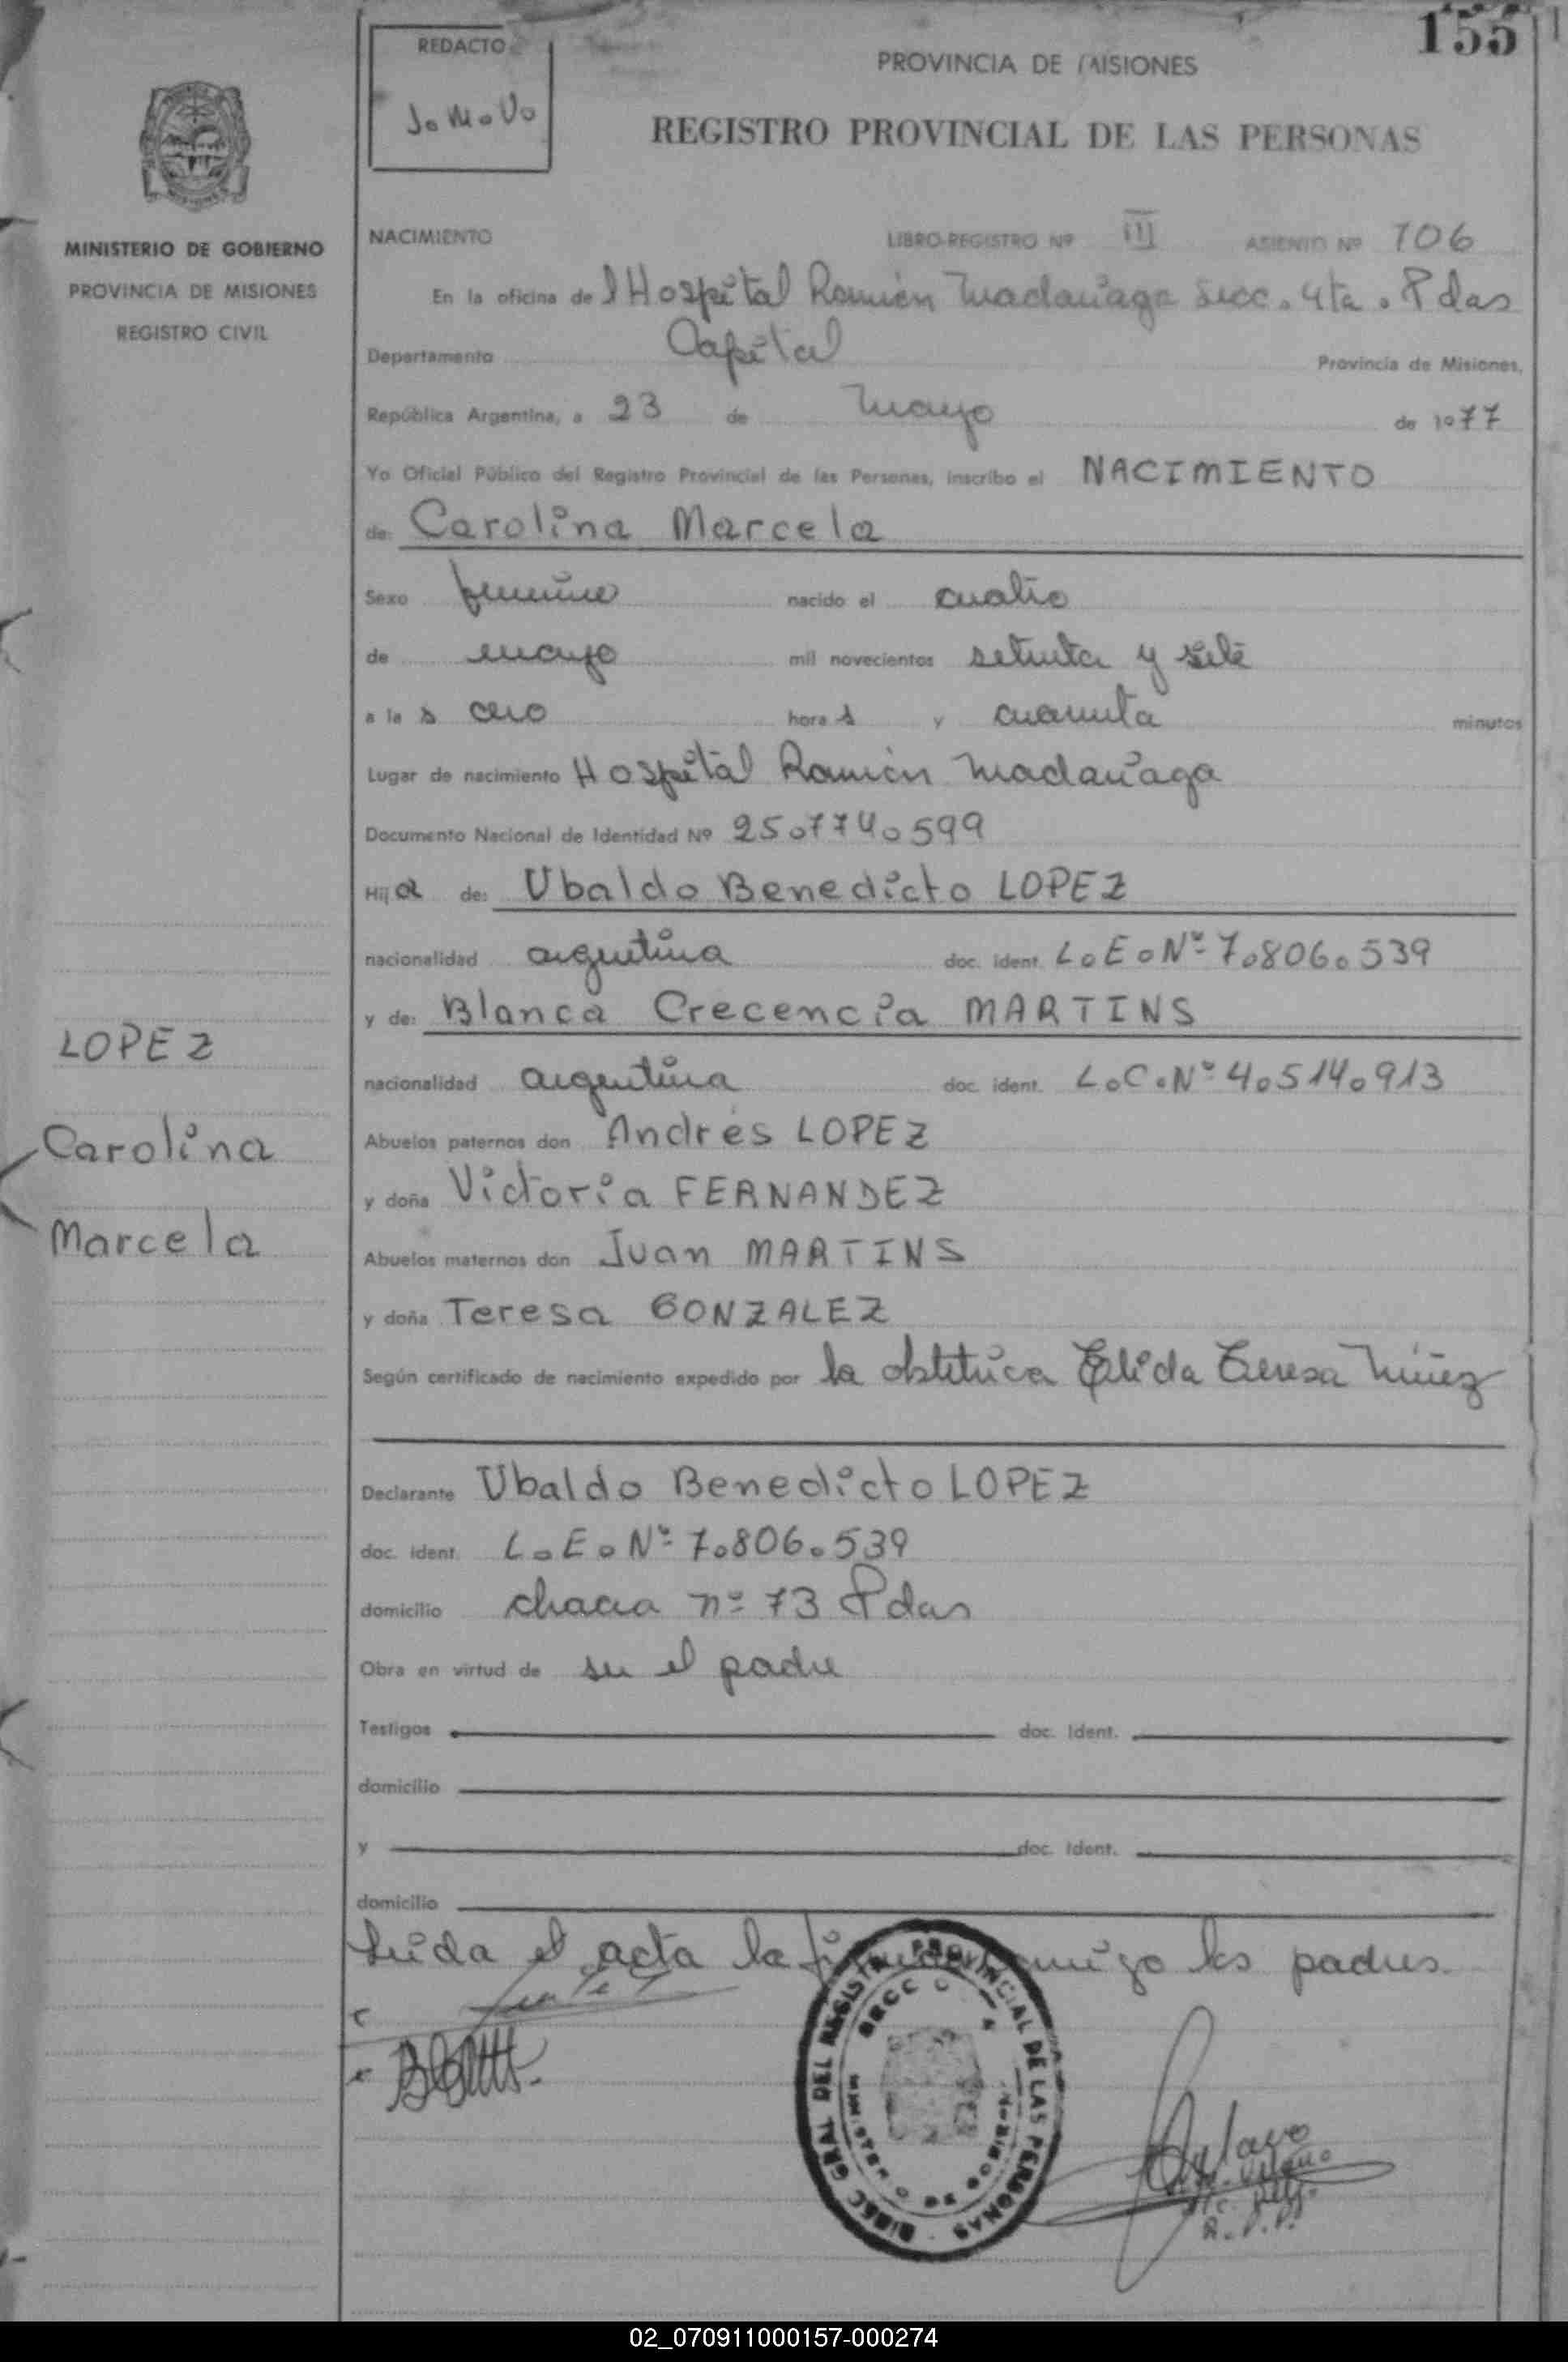 155
REDACTO
J. M. V.
PROVINCIA DE MISIONES
REGISTRO PROVINCIAL DE LAS PERSONAS
MINISTERIO DE GOBIERNO
PROVINCIA DE MISIONES
REGISTRO CIVIL
NACIMIENTO LIBRO-REGISTRO Nº III ASIENTO Nº 706
En la oficina del Hospital Ramón Madariaga Secc. 4ta. Pdas
Departamento Capital Provincia de Misiones,
República Argentina, a 23 de mayo de 1977
Yo Oficial Público del Registro Provincial de las Personas, inscribo el NACIMIENTO
de: Carolina Marcela
Sexo femenino nacido el cuatro
de mayo mil novecientos setenta y siete
a las cero horas y cuarenta minutos
Lugar de nacimiento Hospital Ramón Madariaga
Documento Nacional de Identidad Nº 25.774.599
Hija de: Ubaldo Benedicto LOPEZ
nacionalidad argentina doc. ident. L.E.Nº 7.806.539
y de: Blanca Crecencia MARTINS
nacionalidad argentina doc. ident. L.C.Nº 4.514.913
LOPEZ
Carolina
Marcela
Abuelos paternos don Andrés LOPEZ
y doña Victoria FERNANDEZ
Abuelos maternos don Juan MARTINS
y doña Teresa GONZALEZ
Según certificado de nacimiento expedido por la obstetrica Elida Teresa Núñez
Declarante Ubaldo Benedicto LOPEZ
doc. ident. L.E.Nº 7.806.539
domicilio chacra nº 73 Pdas
Obra en virtud de ser el padre
Testigos doc. Ident.
domicilio
y doc. Ident.
domicilio
Leída el acta la firman conmigo los padres.
DIREC. GRAL DEL REGISTRO PROVINCIAL DE LAS PERSONAS
R.P.P.
02_070911000157-000274